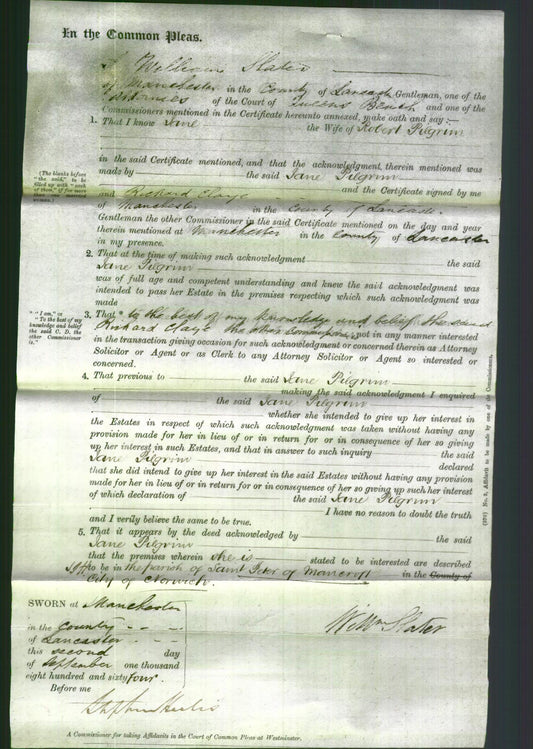 In the Common Pleas.
I William Slater
of Manchester in the County of Lancaster Gentleman, one of the
Witnesses of the Court of Queens Bench and one of the
Commissioners mentioned in the Certificate hereunto annexed, make oath and say :—
1. That I know Jane the Wife of Robert Pilgrim
in the said Certificate mentioned, and that the acknowledgment, therein mentioned was
made by the said Jane Pilgrim
(The blanks before "the said," to be filled up with "each of them," if for more than one married woman.)
and Richard Claye and the Certificate signed by me
of Manchester in the County of Lancaster
Gentleman the other Commissioner in the said Certificate mentioned on the day and year
therein mentioned at Manchester in the County of Lancaster
in my presence.
2. That at the time of making such acknowledgment the said
Jane Pilgrim
was of full age and competent understanding and knew the said acknowledgment was
intended to pass her Estate in the premises respecting which such acknowledgment was
made
* "I am," or "To the best of my knowledge and belief the said C. D. the other Commissioner is."
3. That * to the best of my knowledge and belief the said
Richard Claye the other Commissioner is not in any manner interested
in the transaction giving occasion for such acknowledgment or concerned therein as Attorney
Solicitor or Agent or as Clerk to any Attorney Solicitor or Agent so interested or
concerned.
4. That previous to the said Jane Pilgrim
making the said acknowledgment I enquired
of the said Jane Pilgrim
whether she intended to give up her interest in
the Estates in respect of which such acknowledgment was taken without having any
provision made for her in lieu of or in return for or in consequence of her so giving
up her interest in such Estates, and that in answer to such inquiry the said
Jane Pilgrim declared
that she did intend to give up her interest in the said Estates without having any provision
made for her in lieu of or in return for or in consequence of her so giving up such her interest
of which declaration of the said Jane Pilgrim
I have no reason to doubt the truth
and I verily believe the same to be true.
5. That it appears by the deed acknowledged by the said
Jane Pilgrim
that the premises wherein she is stated to be interested are described
to be in the parish of Saint Peter of Mancroft in the County of
City of Norwich.
SWORN at Manchester
in the County
of Lancaster
this second day
of September one thousand
eight hundred and sixty four.
Before me
Willm Slater
A Commissioner for taking Affidavits in the Court of Common Pleas at Westminster.
(270) No. 3, Affidavit to be made by one of the Commissioners.